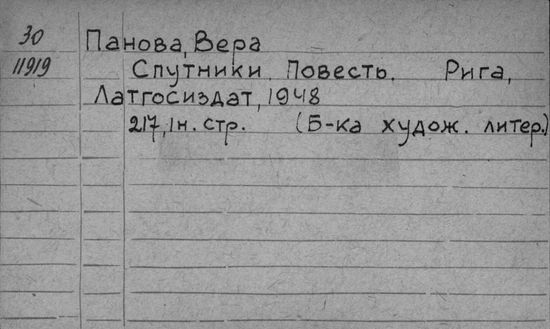 30
Панова, Вера
11919
Спутники. Повесть. Рига,
Латгосиздат, 1948
217, 1н. стр. (Б-ка худож. литер.)